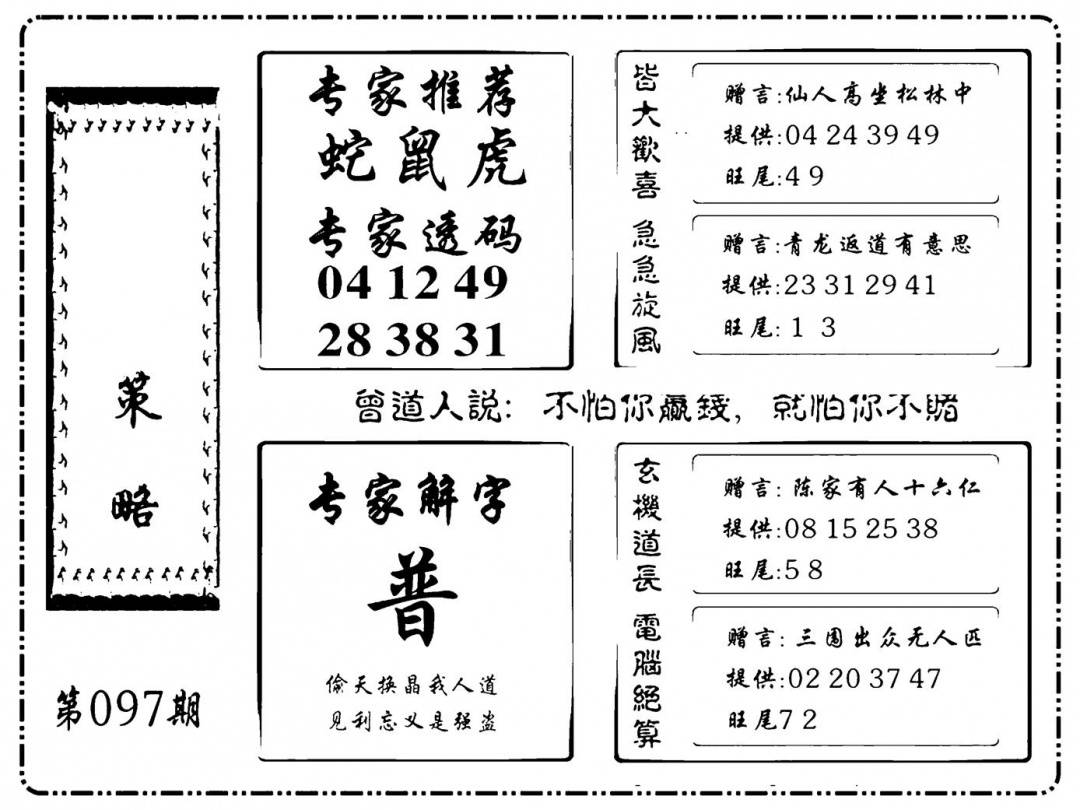 策略
第097期
专家推荐
蛇鼠虎
专家透码
04 12 49
28 38 31
皆大歡喜
赠言:仙人高坐松林中
提供:04 24 39 49
旺尾:4 9
急急旋風
赠言:青龙返道有意思
提供:23 31 29 41
旺尾:1 3
曾道人説: 不怕你贏錢, 就怕你不賭
专家解字
普
偷天换晶我人道
见利忘义是强盗
玄機道長
赠言: 陈家有人十六仁
提供:08 15 25 38
旺尾:5 8
電腦絕算
赠言: 三围出众无人匹
提供:02 20 37 47
旺尾7 2